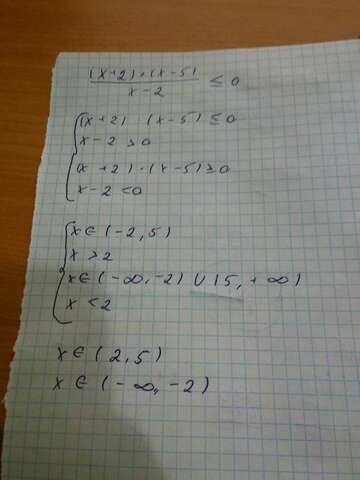 (x+2)·(x-5)
x-2 ≤ 0
(x+2) (x-5) ≤ 0
x-2 > 0
(x+2)·(x-5) ≥ 0
x-2 < 0
x ∈ (-2, 5)
x > 2
x ∈ (-∞, -2) ∪ (5, +∞)
x < 2
x ∈ (2, 5)
x ∈ (-∞, -2)